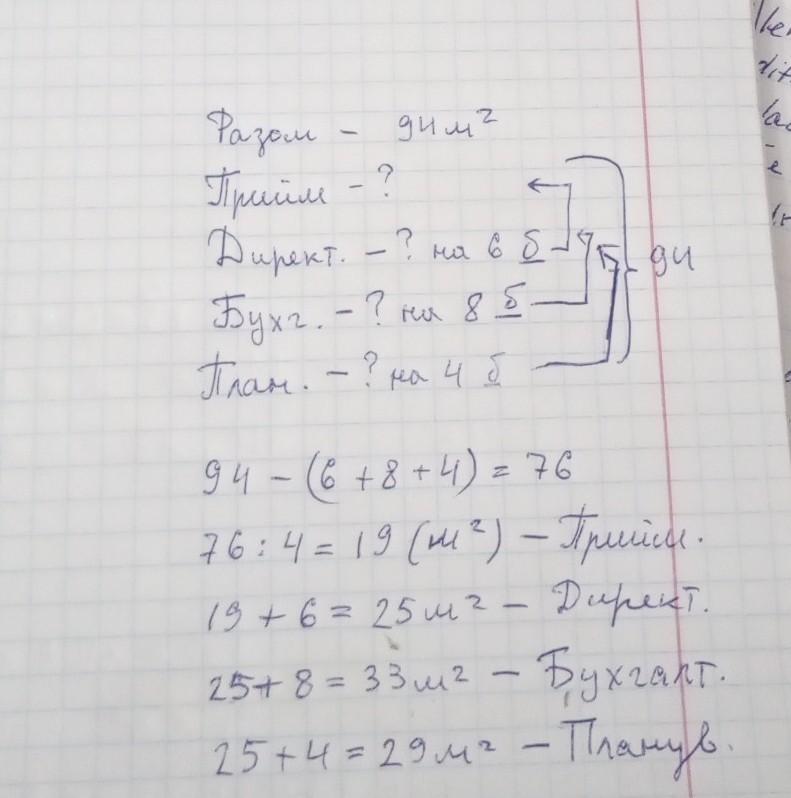 Разом - 94 м²
Прийм - ?
Директ. - ? на 6 б
Бухг. - ? на 8 б
План. - ? на 4 б
94
94 - (6 + 8 + 4) = 76
76 : 4 = 19 (м²) - Прийм.
19 + 6 = 25 м² - Директ.
25 + 8 = 33 м² - Бухгалт.
25 + 4 = 29 м² - Планув.